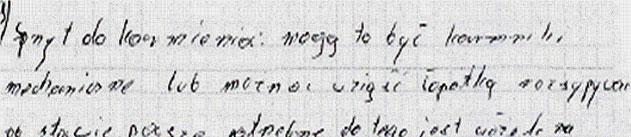 Sprzęt do karmienia: mogą to być karmniki
mechaniczne lub można wziąść łopatkę rozsypywać
po stawie paszę potrzebne do tego jest